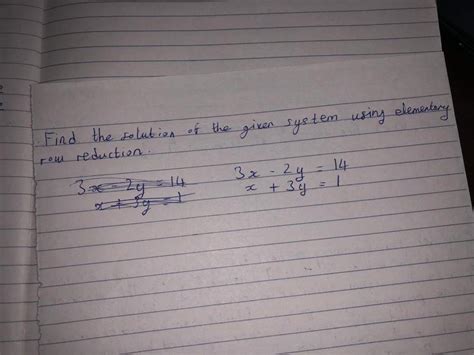 Find the solution of the given system using elementary
row reduction.
3x - 2y = 14
x + 3y = 1
3x - 2y = 14
x + 3y = 1